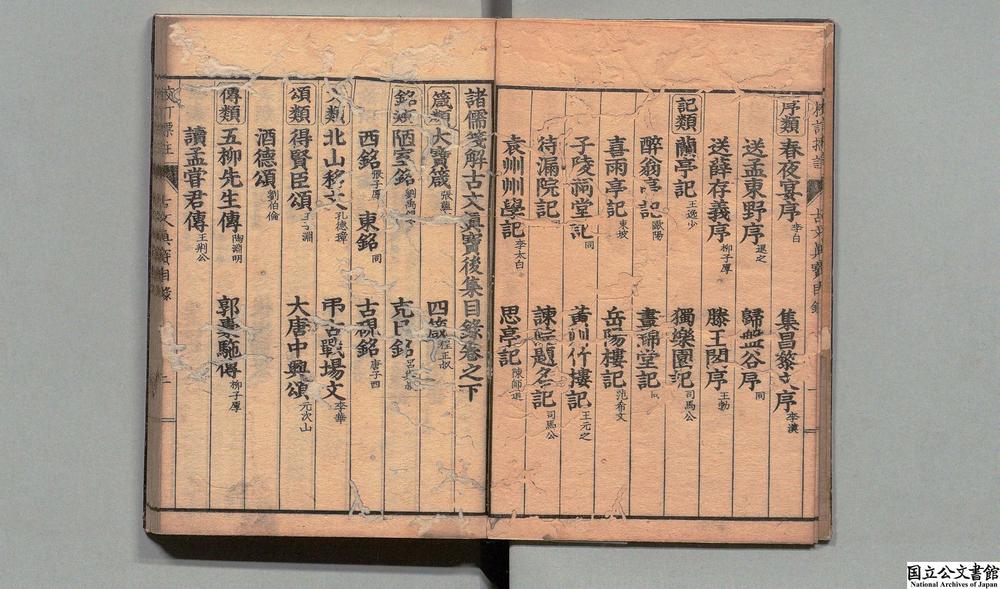 序類 春夜宴序 李白 集昌黎文序 李漢
送孟東野序 退之 歸盤谷序 同
送薛存義序 柳子厚 滕王閣序 王勃
記類 蘭亭記 王逸少 獨樂園記 司馬公
醉翁亭記 歐陽 晝錦堂記 同
喜雨亭記 東坡 岳陽樓記 范希文
子陵祠堂記 同 黃州竹樓記 王元之
待漏院記 諫院題名記 司馬公
袁州州學記 李太白 思亭記 陳師道
諸儒箋解古文眞寶後集目錄卷之下
箴類 大寶箴 張蘊 四箴 程正叔
銘類 陋室銘 劉禹錫 克己銘
西銘 張子厚 東銘 同 古硯銘 唐子西
文類 北山移文 孔德璋 弔古戰場文 李華
頌類 得賢臣頌 王子淵 大唐中興頌 元次山
酒德頌 劉伯倫
傳類 五柳先生傳 陶淵明 郭橐駞傳 柳子厚
讀孟嘗君傳 王荆公
古文眞寶目錄
三
国立公文書館
National Archives of Japan